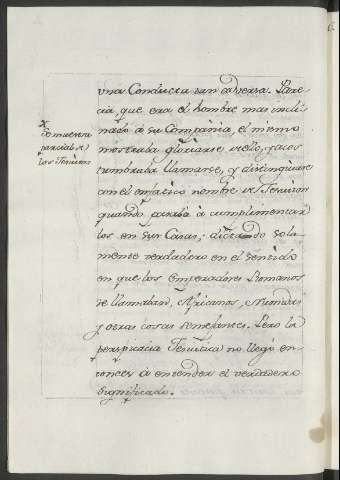 una Conducta tan adversa. Pare
cia, que era el hombre mas incli
nado a su Compañia, el mismo
mostraba gloriarse de ello, y acos
tumbraba llamarse, y distinguirse
con el enfatico nombre de Jesuiton
quando pasaba à cumplimentar
los en sus Casas; dictado sola
mente verdadero en el sentido
en que los Emperadores Romanos
se llamaban, Africanos, Numidas
y otras cosas semejantes. Pero la
perspicacia Jesuitica no llegó en
tonces à entender el verdadero
significado.
Se muestra
parcial de
los Jesuitas